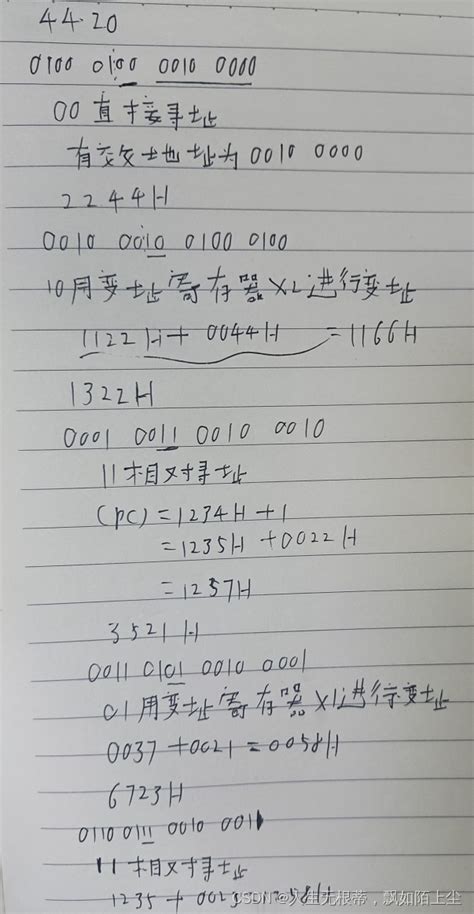 44.20
0100 0100 0010 0000
00直接寻址
有效地址为0010 0000
2244H
0010 0010 0100 0100
10用变址寄存器X2进行变址
1122H+0044H=1166H
1322H
0001 0011 0010 0010
11相对寻址
(PC)=1234H+1
=1235H+0022H
=1257H
3521H
0011 0101 0010 0001
01用变址寄存器X1进行变址
0037+0021=0058H
6723H
0110 0111 0010 0011
11相对寻址
1235+0023=1258H
CSDN @人生无根蒂,飘如陌上尘